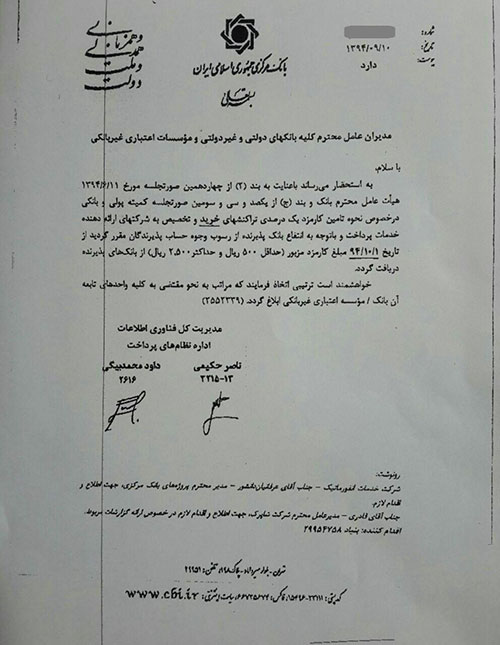 شماره:
تاریخ: ۱۳۹۴/۰۹/۱۰
پیوست: دارد
دولت و ملت همدلی و همزبانی
بانک مرکزی جمهوری اسلامی ایران
بسمه تعالی
مدیران عامل محترم کلیه بانکهای دولتی و غیردولتی و مؤسسات اعتباری غیربانکی
با سلام،
به استحضار می‌رساند باعنایت به بند (۲) از چهاردهمین صورتجلسه مورخ ۱۳۹۴/۶/۱۱
هیأت عامل محترم بانک و بند (ج) از یکصد و سی و سومین صورتجلسه کمیته پولی و بانکی
درخصوص نحوه تامین کارمزد یک درصدی تراکنشهای خرید و تخصیص به شرکتهای ارائه دهنده
خدمات پرداخت و باتوجه به انتفاع بانک پذیرنده از رسوب وجوه حساب پذیرندگان مقرر گردید از
تاریخ ۹۴/۱۰/۱ مبلغ کارمزد مزبور (حداقل ۵۰۰ ریال و حداکثر ۲،۵۰۰ ریال) از بانک‌های پذیرنده
دریافت گردد.
خواهشمند است ترتیبی اتخاذ فرمایند که مراتب به نحو مقتضی به کلیه واحدهای تابعه
آن بانک / مؤسسه اعتباری غیربانکی ابلاغ گردد. (۲۵۵۲۳۳۹)
مدیریت کل فناوری اطلاعات
اداره نظام‌های پرداخت
ناصر حکیمی داود محمدبیگی
۳۲۱۵-۱۳ ۲۶۱۶
رونوشت:
شرکت خدمات انفورماتیک – جناب آقای عرفانیان‌دانشور – مدیر محترم پروژه‌های بانک مرکزی، جهت اطلاع و
اقدام لازم.
جناب آقای قادری – مدیرعامل محترم شرکت شاپرک، جهت اطلاع و اقدام لازم در خصوص ارائه گزارشات مربوط.
اقدام کننده: بنیاد ۲۹۹۵۴۷۵۸
تهران - بلوار میرداماد - پلاک ۱۹۸ تلفن: ۲۹۹۵۱
کدپستی: ۲۳۱۱۱-۱۵۴۹۶ فاکس: ۶۶۷۳۵۶۷۴ سایت اینترنتی: www.cbi.ir